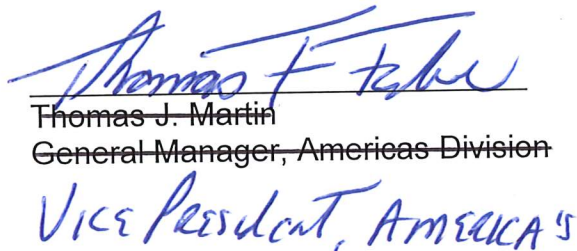 Thomas F
Thomas J. Martin
General Manager, Americas Division
Vice President, America's